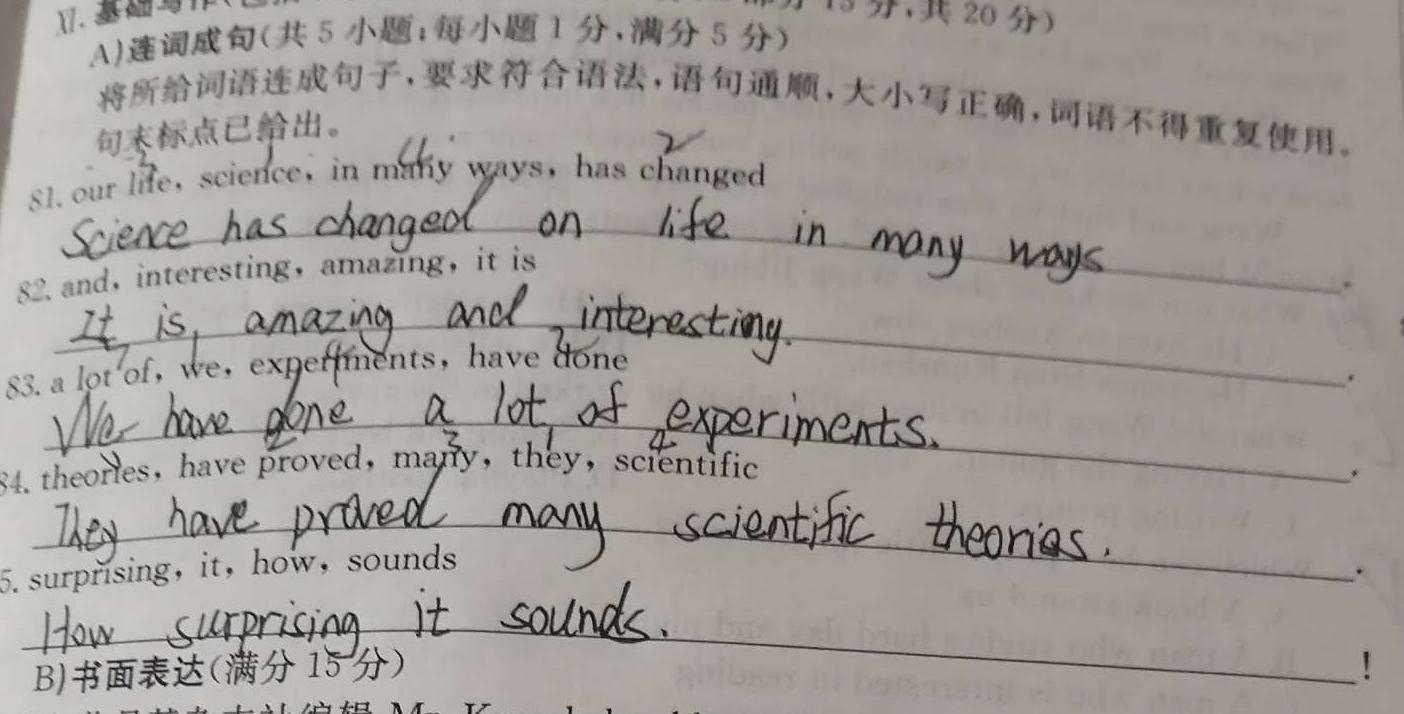 XI. 基础写作 15分，共20分）
A)连词成句(共5小题；每小题1分，满分5分)
将所给词语连成句子，要求符合语法，语句通顺，大小写正确，词语不得重复使用。
句末标点已给出。
3 1 4 2
81. our life，science，in many ways，has changed
Science has changed on life in many ways .
82. and，interesting，amazing，it is
It is amazing and interesting. .
83. a lot of，we，experiments，have done
We have done a lot of experiments. .
2 3 1 4
84. theories，have proved，many，they，scientific
They have proved many scientific theories. .
5. surprising，it，how，sounds
How surprising it sounds. !
B)书面表达(满分15分)